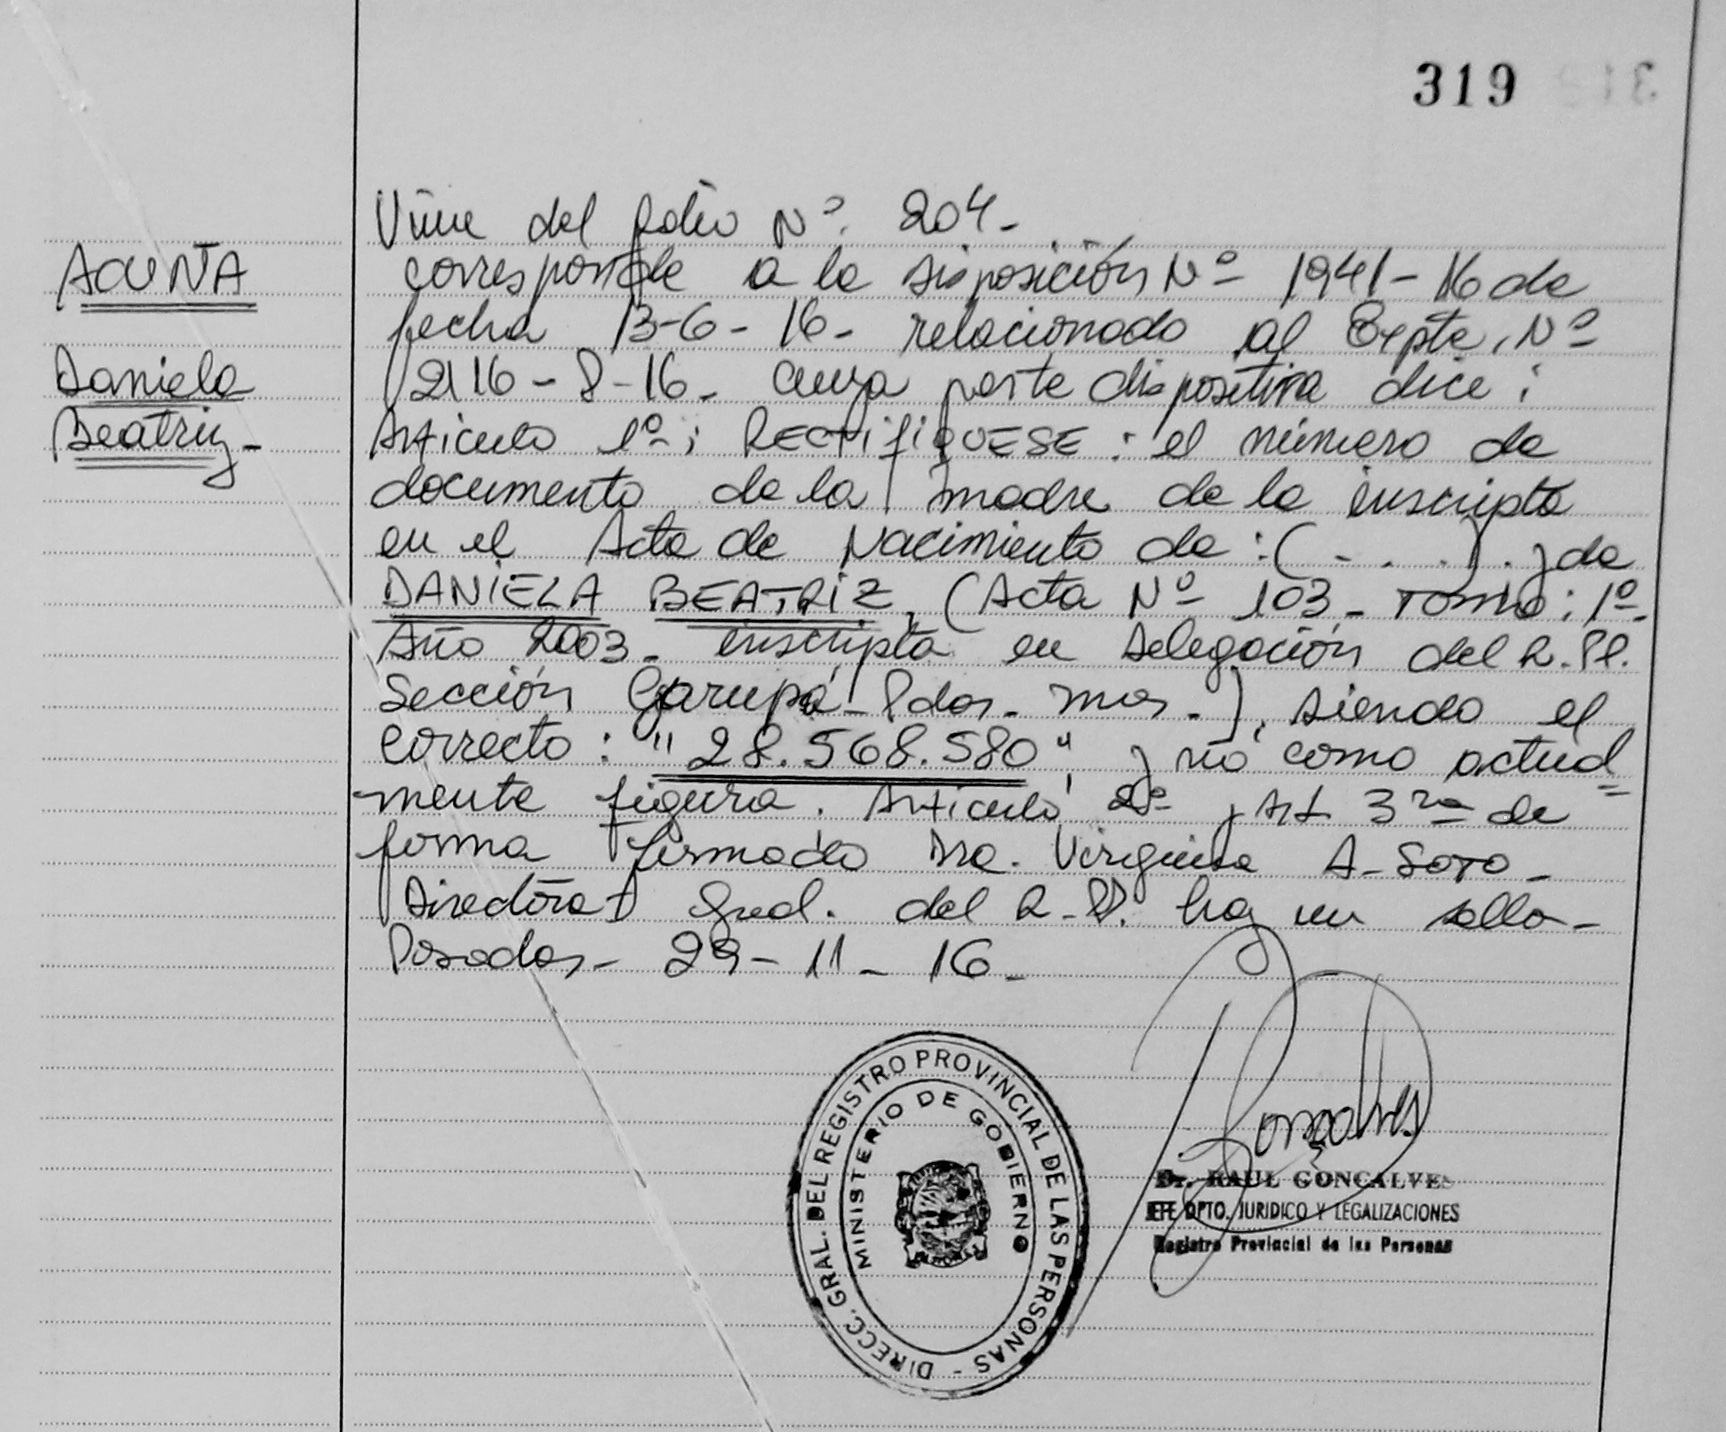 319
ACUÑA
Daniela
Beatriz-
Viene del folio Nº. 204-
corresponde a la disposición Nº 1941-16 de
fecha 13-6-16- relacionado al Expte. Nº
2116-8-16- cuya parte dispositiva dice:
Articulo 1º; RECTIFIQUESE: el número de
documento de la madre de la inscripta
en el Acta de Nacimiento de: (- . . .) . . de
DANIELA BEATRIZ, (Acta Nº 103- Tomo: 1º-
Año 2003- inscripta en Delegación del R.PP.
Sección Garupá-Pdas- Mnes-), siendo el
correcto: "28.568.580", y no como actual
mente figura. Artículo 2º y Art 3ro de
forma firmado Dra. Virginia A-SOTO-
Directora Gral. del R-PP. hay un sello-
Posadas- 29-11-16-
DIRECC. GRAL. DEL REGISTRO PROVINCIAL DE LAS PERSONAS -
MINISTERIO DE GOBIERNO
Goncalves
Dr. RAUL GONCALVES
JEFE DPTO. JURIDICO Y LEGALIZACIONES
Registro Provincial de las Personas